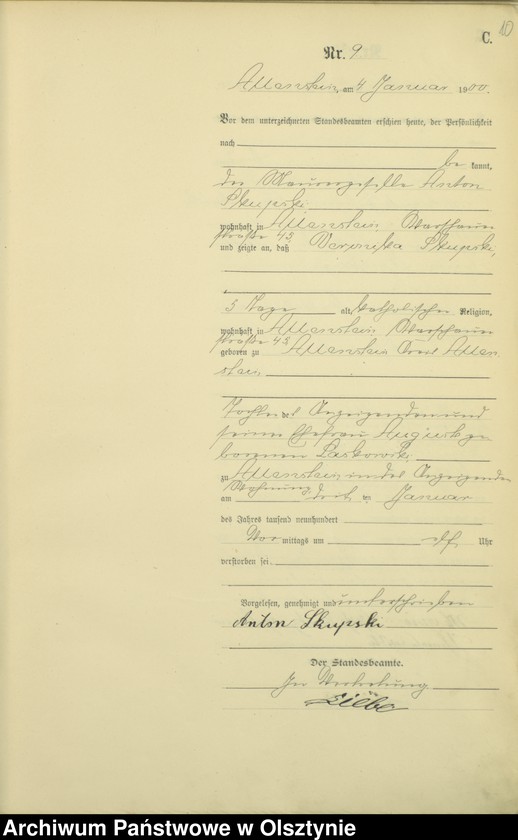 10
C.
Nr. 9
Allenstein, am 4 Januar 1900.
Vor dem unterzeichneten Standesbeamten erschien heute, der Persönlichkeit
nach
be kannt,
der Maurergeselle Anton
Skupski
wohnhaft in Allenstein
straße 43
und zeigte an, daß Veronika Skupski,
5 Tage alt, katholischer Religion,
wohnhaft in Allenstein
straße 43
geboren zu Allenstein Kreis Allen
stein
Tochter des Anzeigenden und
seiner Ehefrau Auguste ge
borenen Laskowski
zu Allenstein in des Anzeigenden
Wohnung
am drei ten Januar
des Jahres tausend neunhundert
Vor mittags um elf Uhr
verstorben sei.
Vorgelesen, genehmigt und unterschrieben
Anton Skupski
Der Standesbeamte.
In Vertretung
Archiwum Państwowe w Olsztynie